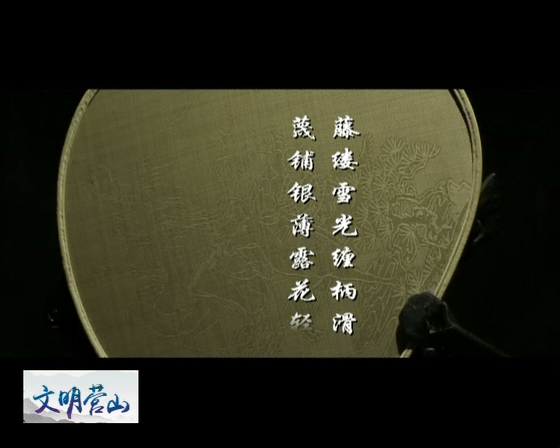 藤缕雪光缠柄滑
篾铺银薄露花轻
文明营山